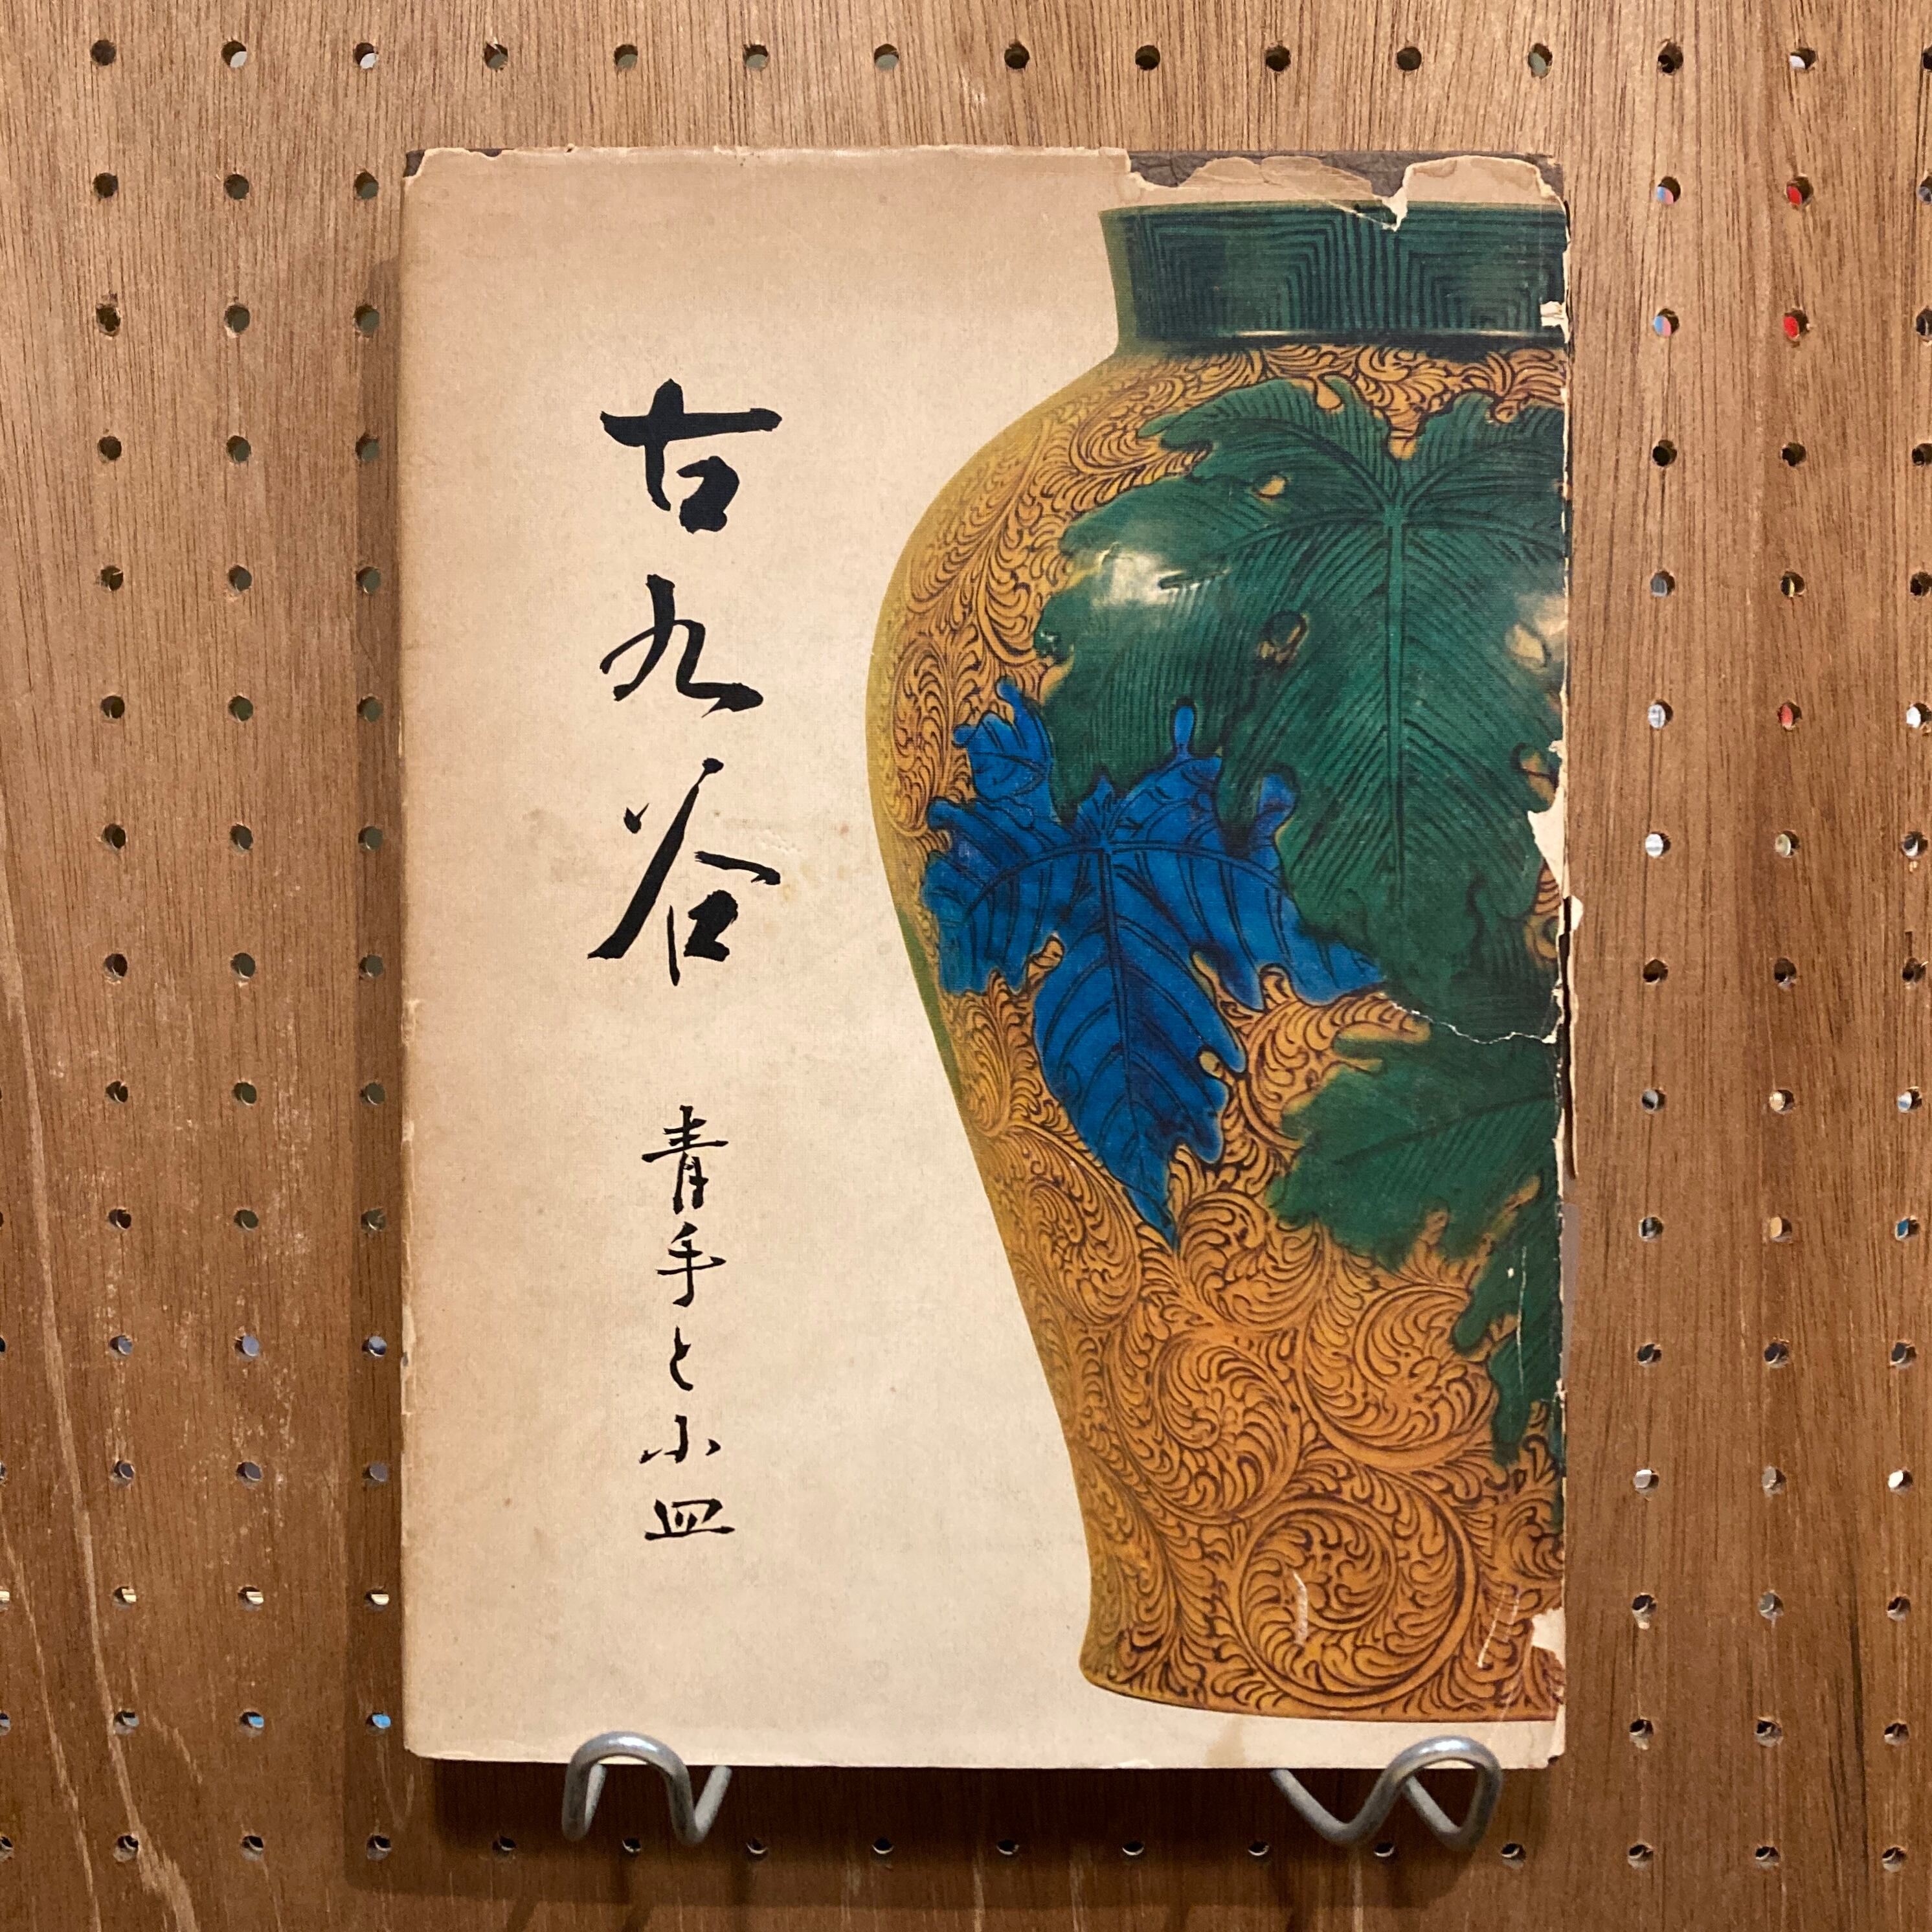 古九谷
青手と小皿